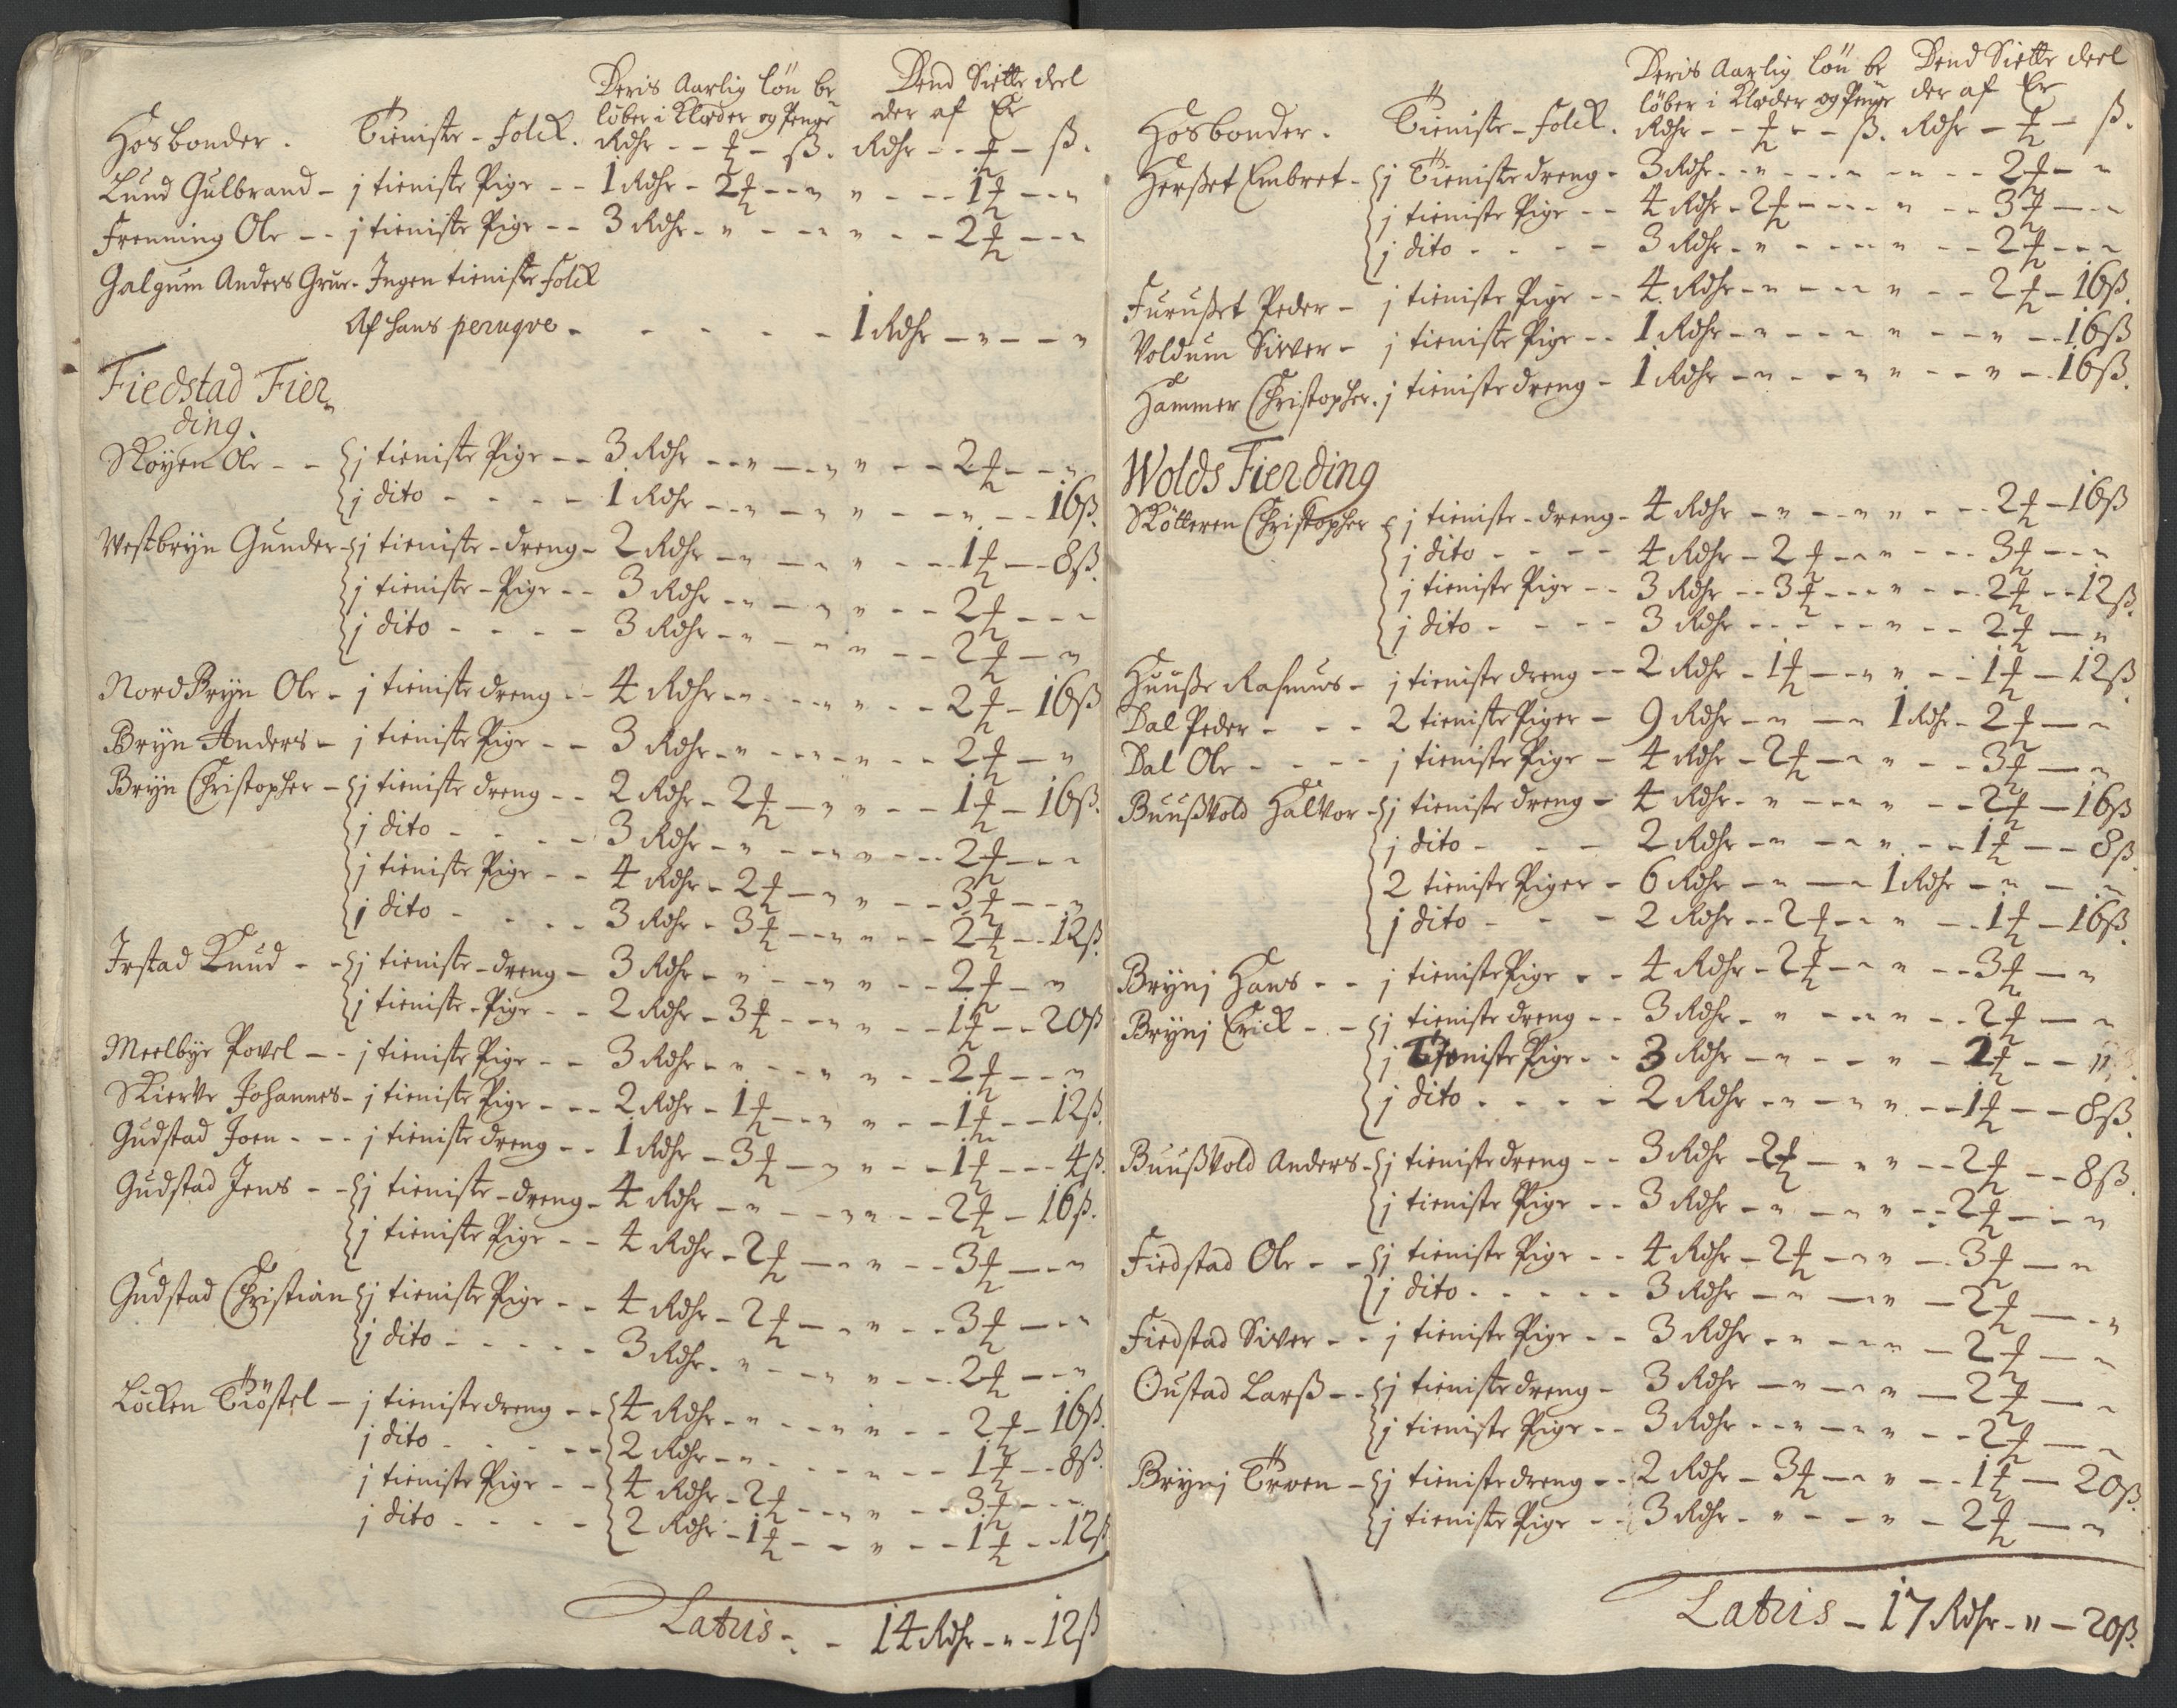 Hosbonder. Tieniste-Folck. Deris Aarlig Lön be Dend Siette deel
löber i Klæder og Penge der af Er
Rdhr - - ₰ - ß. Rdhr - - ₰ - ß.
Lund Gulbrand - j tieniste Pige - - 1 Rdhr - 2 ₰ - - " " - - - 1 ₰ - - "
Frenning Ole - - j tieniste Pige - - 3 Rdhr - " - - - " - - 2 ₰ - - "
Galgum Anders Grue - Ingen tieniste Folck
Af hans peruqve - - - - - - 1 Rdhr - " - - "
Fiedstad Fier
ding.
Skøyen Ole - - j tieniste Pige - - 3 Rdhr - - " - - " " - - 2 ₰ - - "
j dito - - - - 1 Rdhr - - " - - " " - - " - - 16 ß.
Westbryn Gunder - j tieniste-dreng - 2 Rdhr - " - - " - - 1 ₰ - - 8 ß.
j tieniste-Pige - - 3 Rdhr - " - " " - - 2 ₰ - - -
j dito - - - - 3 Rdhr - " - - " " - - 2 ₰ - "
Nord Bryn Ole - j tieniste dreng - - 4 Rdhr - " - - " " - - 2 ₰ - 16 ß
Bryn Anders - j tieniste Pige - - 3 Rdhr - " - - - " - - 2 ₰ - "
Bryn Christopher - j tieniste dreng - - 2 Rdhr - 2 ₰ - " " - - 1 ₰ - 16 ß.
j dito - - - - 3 Rdhr - " - - - " " - - 2 ₰ - - -
j tieniste Pige - - 4 Rdhr - 2 ₰ - " " - - 3 ₰ - - "
j dito - - - - 3 Rdhr - 3 ₰ - - " " - - 2 ₰ - - 12 ß
Irstad Knud - - j tieniste-dreng - 3 Rdhr - " - - " " - - 2 ₰ - "
j tieniste-Pige - - 2 Rdhr - 3 ₰ - - - " " - - 1 ₰ - - 20 ß
Meelbye Povel - - j tieniste Pige - - 3 Rdhr - " - - - " " - - 2 ₰ - - "
Skierve Johannes - j tieniste Pige - - - 2 Rdhr - 1 ₰ - - " " - - 1 ₰ - - 12 ß.
Gudstad Joen - - - j tieniste dreng - - 1 Rdhr - 3 ₰ - - " " - - 1 ₰ - - - 4 ß.
Gudstad Jens - - j tieniste-dreng - 4 Rdhr - " - - - " " - - 2 ₰ - 16 ß.
j tieniste Pige - - 4 Rdhr - 2 ₰ - - " " - - 3 ₰ - - "
Gudstad Christian j tieniste Pige - - 4 Rdhr - 2 ₰ - - " - - 3 ₰ - - "
j dito - - - - - 3 Rdhr - " - - - " " - - 2 ₰ - - "
Löcken Tiöstel - j tieniste dreng - - 4 Rdhr - " - - " " - - 2 ₰ - 16 ß.
j dito - - - - - 2 Rdhr - " - - - " - - 1 ₰ - - 8 ß.
j tieniste Pige - - 4 Rdhr - 2 ₰ - - " " - - 3 ₰ - - -
j dito - - - - 2 Rdhr - 1 ₰ - - " - - 1 ₰ - - 12 ß
Latus - - 14 Rdhr - " - 12 ß
Hosbonder. Tieniste-Folck. Deris Aarlig Lön be Dend Siette deel
löber i Klæder og Penge der af Er
Rdhr - - ₰ - - ß. Rdhr - ₰ - ß.
Herßet Embret - j Tieniste dreng - 3 Rdhr - - " - - - " - - - 2 ₰ - "
j tieniste Pige - - 4 Rdhr - 2 ₰ - - - " - - 3 ₰ - - -
j dito - - - - 3 Rdhr - " - - - " " - - 2 ₰ - - -
Furußet Peder - j tieniste Pige - - 4 Rdhr - " - - - " - - 2 ₰ - 16 ß.
Voldum Siver - j tieniste Pige - - 1 Rdhr - " - - - " - - " - - 16 ß
Hammer Christopher. j tieniste dreng - 1 Rdhr - " - - " " - - " - 16 ß.
Wolds Fierding
Skötteren Christopher j tieniste-dreng - 4 Rdhr - " - - " " - - - 2 ₰ - 16 ß
j dito - - - - 4 Rdhr - 2 ₰ - - " - - - 3 ₰ - - "
j tieniste Pige - - 3 Rdhr - - 3 ₰ - - - " - - 2 ₰ - - 12 ß.
j dito - - - - 3 Rdhr - - - - - " - - 2 ₰ - "
Huuße Rasmus - j tieniste dreng - - 2 Rdhr - 1 ₰ - - " " - - 1 ₰ - 12 ß
Dal Peder - - - 2 tieniste Piger - 9 Rdhr - " - " 1 Rdhr - 2 ₰ - "
Dal Ole - - - - j tieniste Pige - 4 Rdhr - 2 ₰ - " " - - 3 ₰ - "
Buußvold Halvor - j tieniste dreng - 4 Rdhr - " - - " " - - 2 ₰ - 16 ß
j dito - - - 2 Rdhr - " - - " - - 1 ₰ - - 8 ß
2 tieniste Piger - 6 Rdhr - " - - 1 Rdhr - " - "
j dito - - - 2 Rdhr - - 2 ₰ - - " - - 1 ₰ - 16 ß.
Brynj Hans - - j tieniste Pige - - 4 Rdhr - 2 ₰ - - " - - 3 ₰ - "
Brynj Erick - - j tieniste dreng - - 3 Rdhr - " - - " - - 2 ₰ - "
j Tieniste Pige - - 3 Rdhr - " - - " - 2 ₰ - - "
j dito - - - - 2 Rdhr - " - " " - - 1 ₰ - - 8 ß.
Buußvold Anders - j tieniste dreng - - 3 Rdhr - 2 ₰ - " " - - 2 ₰ - - 8 ß.
j tieniste Pige - - 3 Rdhr - " - " " - - 2 ₰ - - "
Fiedstad Ole - - j tieniste Pige - - 4 Rdhr - 2 ₰ - - " - 3 ₰ - "
j dito - - - - - 3 Rdhr - " - - " - 2 ₰ - - "
Fiedstad Siver - - j tieniste Pige - - 3 Rdhr - " - - " - 2 ₰ - "
Oustad Larß - - j tieniste dreng - 3 Rdhr - " - - " - 2 ₰ - -
j tieniste Pige - - 3 Rdhr - - " - " " - - 2 ₰ - -
Brynj Troen - j tieniste dreng - - 2 Rdhr - 3 ₰ - - " - - 1 ₰ - 20 ß.
j tieniste Pige - - 3 Rdhr - " - - " - 2 ₰ - "
Latus - 17 Rdhr - " - 20 ß.